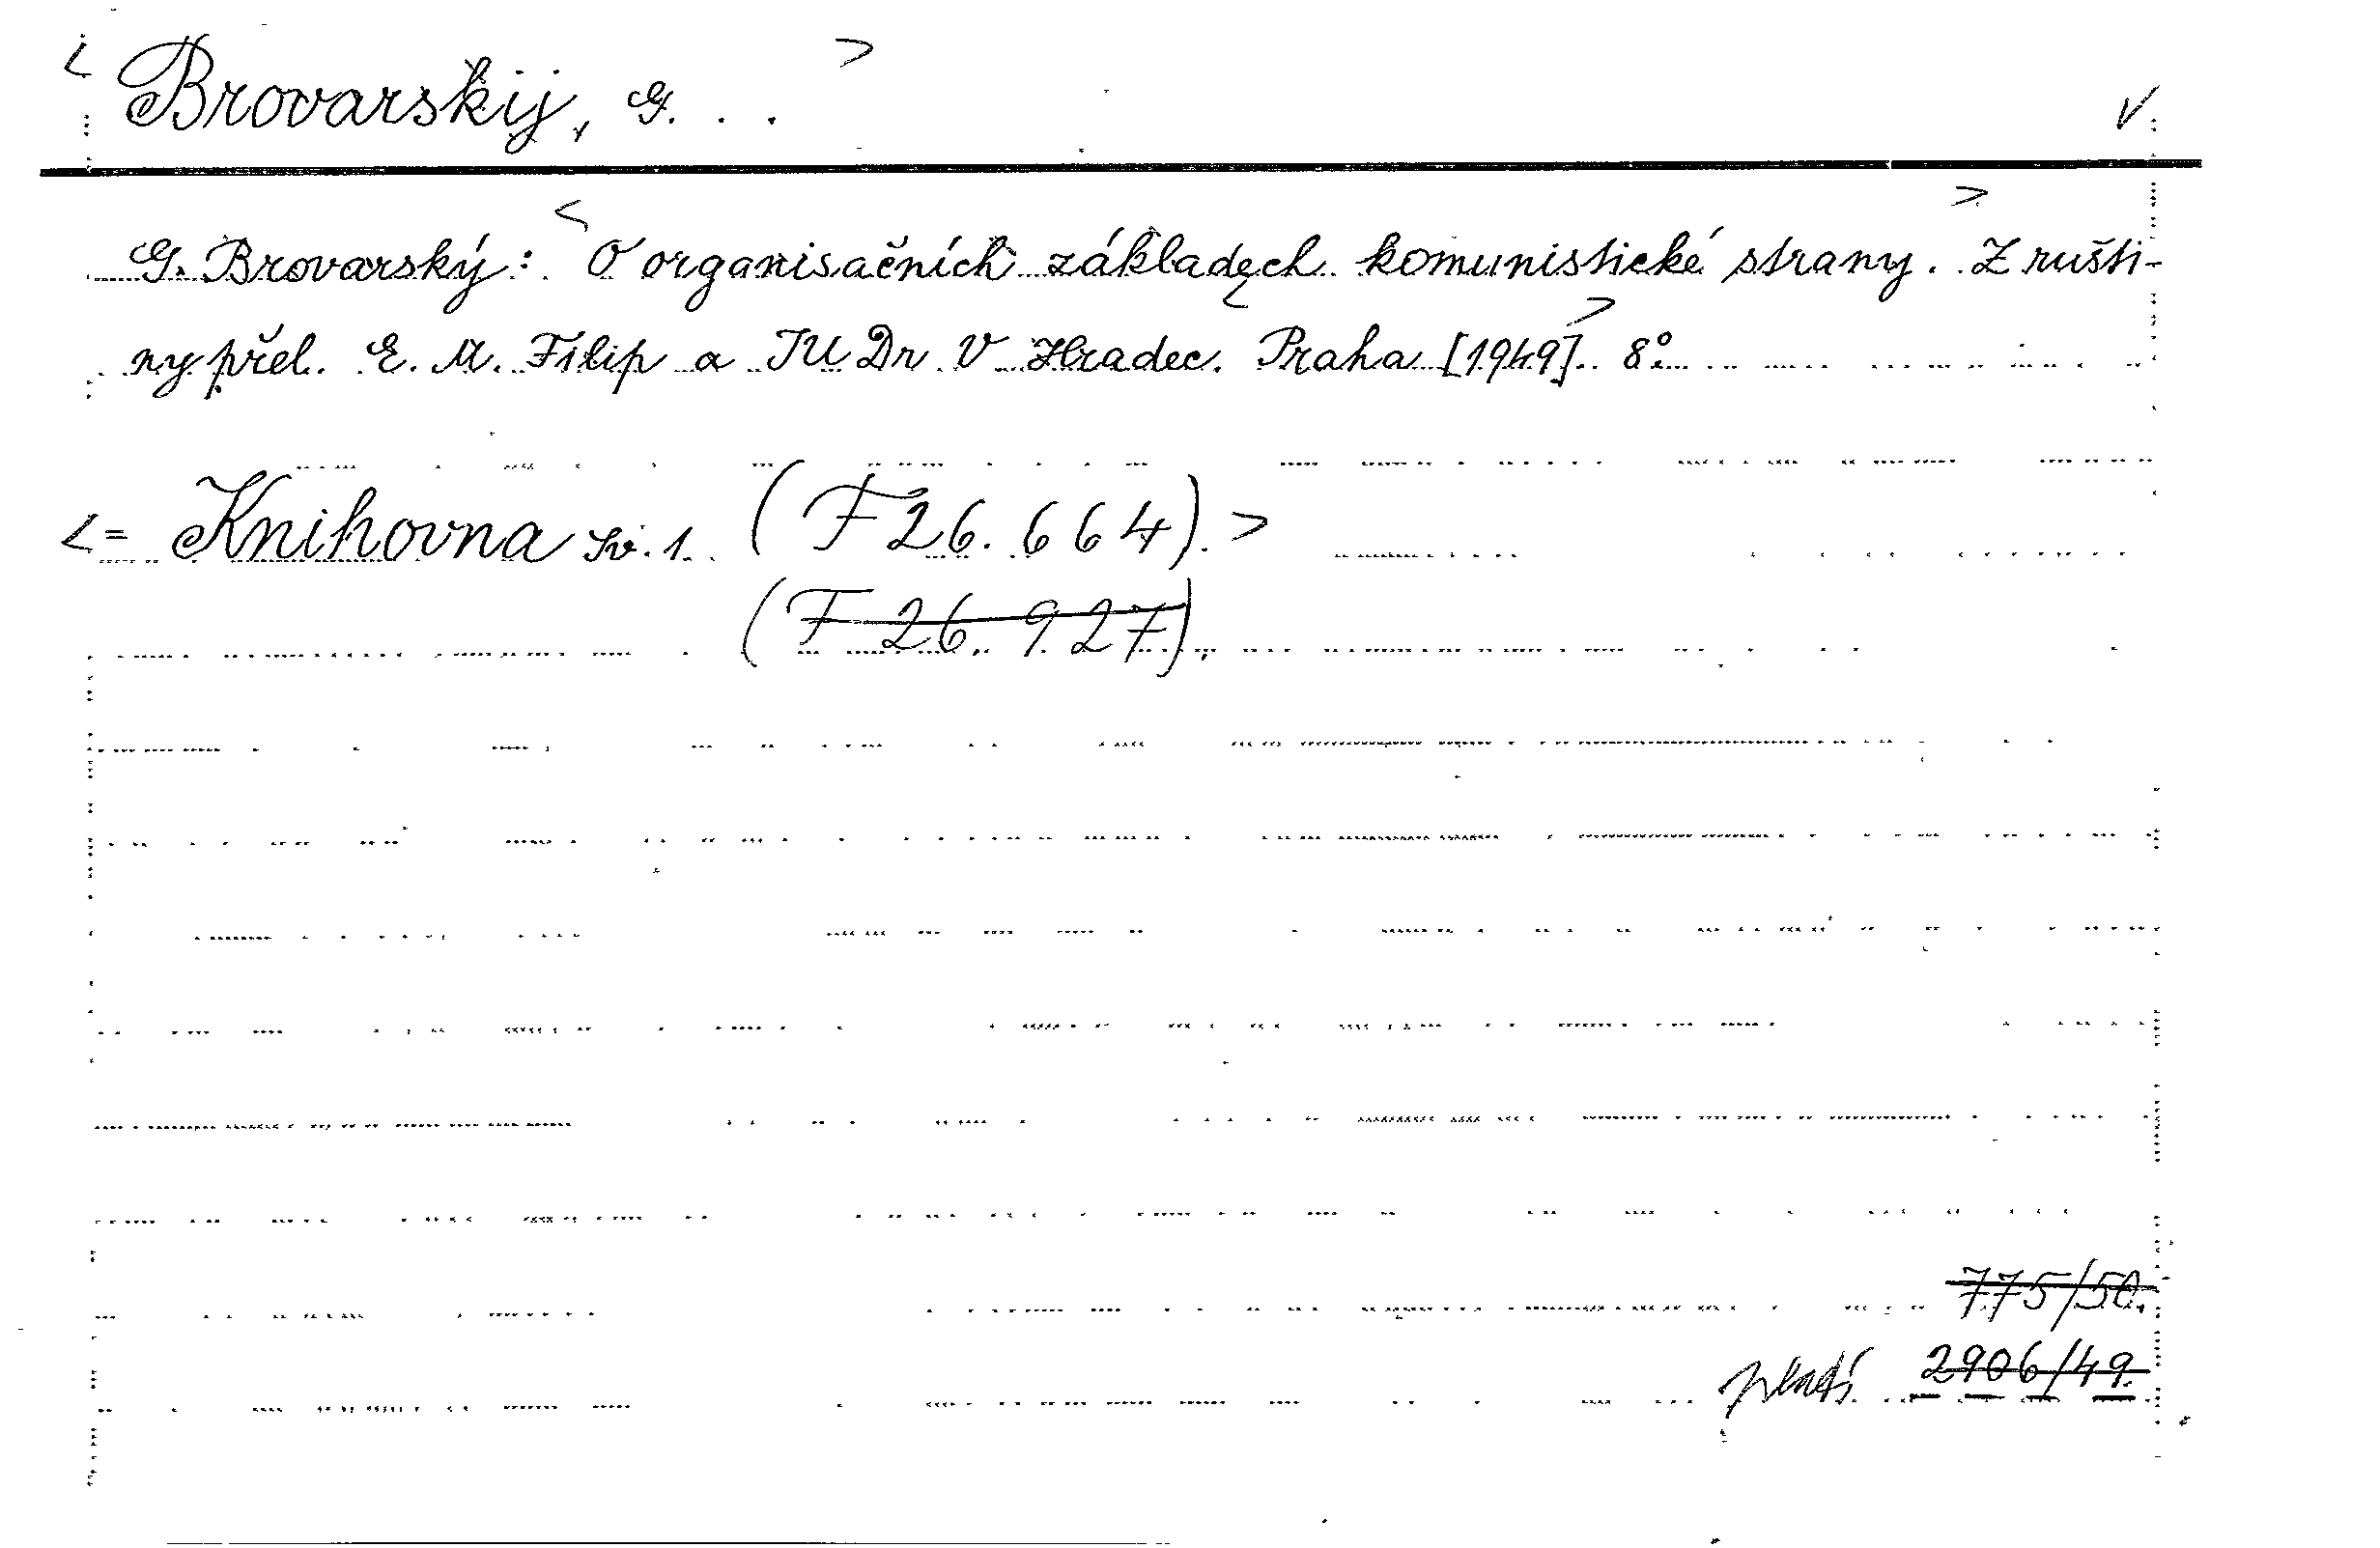 < Brovarskij, G. . . >
V
G. Brovarský: < O organisačních základech komunistické strany. > Z rušti-
ny přel. E. M. Filip a JUDr V Hradec. < Praha [1949]. > 8°.
<= Knihovna sv. 1. (F 26.664). >
(F 26.927).
775/50.
platí 2906/49.